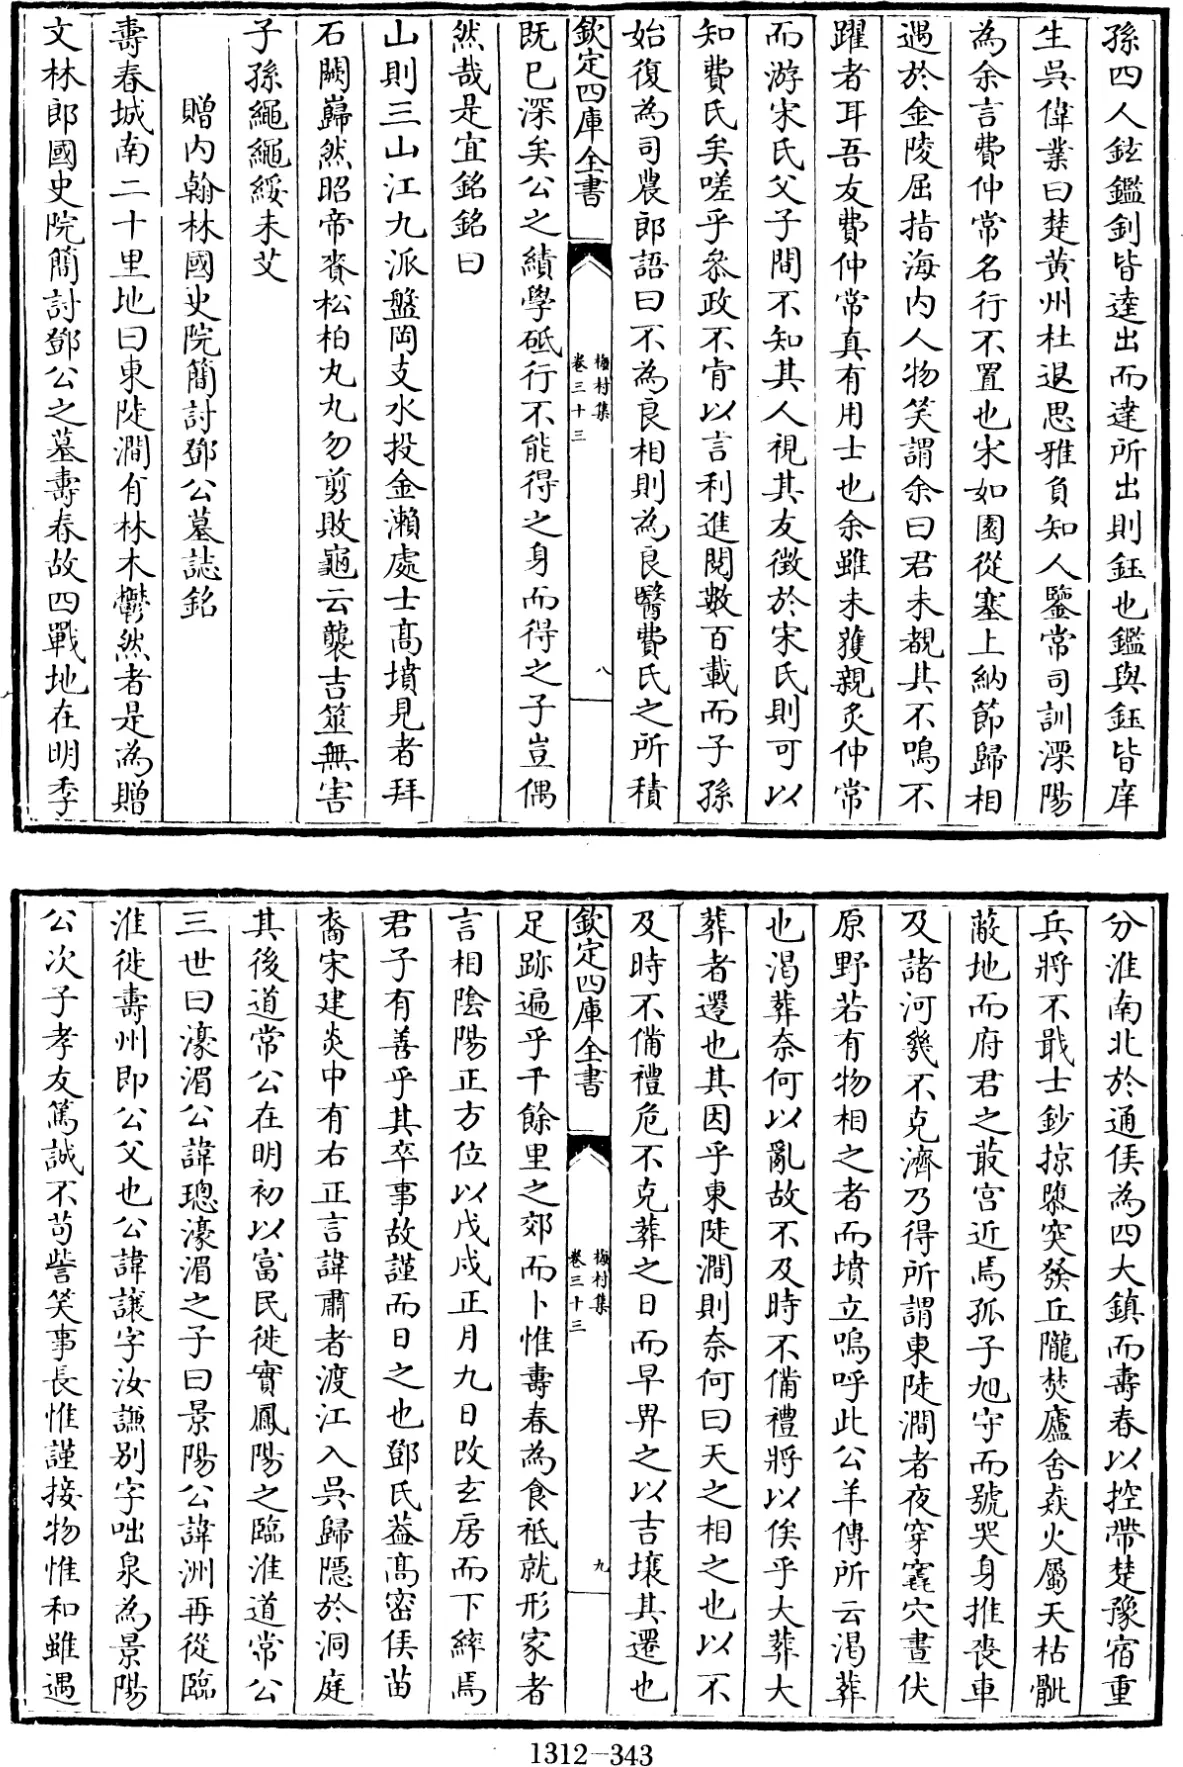 孫四人鉉鑑釗皆達出而達所出則鈺也鑑與鈺皆庠
生吳偉業曰楚黄州杜退思雅負知人鑒常司訓溧陽
為余言費仲常名行不置也宋如園從塞上納節歸相
遇於金陵屈指海内人物笑謂余曰君未覩其不鳴不
躍者耳吾友費仲常真有用士也余雖未獲親炙仲常
而游宋氏父子間不知其人視其友徵於宋氏則可以
知費氏矣嗟乎叅政不肯以言利進閲數百載而子孫
始復為司農郎語曰不為良相則為良醫費氏之所積
欽定四庫全書
梅村集
卷三十三
八
既已深矣公之績學砥行不能得之身而得之子豈偶
然哉是宜銘銘曰
山則三山江九派盤岡支水投金瀨處士高墳見者拜
石闕巋然昭帝賚松柏丸丸勿剪敗龜云襲吉筮無害
子孫繩繩綏未艾
贈内翰林國史院簡討鄧公墓誌銘
壽春城南二十里地曰東陡澗有林木鬱然者是為贈
文林郎國史院簡討鄧公之墓壽春故四戰地在明季
分淮南北於通侯為四大鎮而壽春以控帶楚豫宿重
兵將不戢士鈔掠隳突發丘隴焚廬舍猋火屬天枯骴
蔽地而府君之菆宫近焉孤子旭守而號哭身推喪車
及諸河幾不克濟乃得所謂東陡澗者夜穿窀穴晝伏
原野若有物相之者而墳立嗚呼此公羊傳所云渴葬
也渴葬奈何以亂故不及時不備禮將以俟乎大葬大
葬者遷也其因乎東陡澗則奈何曰天之相之也以不
及時不備禮危不克葬之日而早畀之以吉壤其遷也
欽定四庫全書
梅村集
卷三十三
九
足跡遍乎千餘里之郊而卜惟壽春為食祇就形家者
言相陰陽正方位以戊戌正月九日改玄房而下縡焉
君子有善乎其卒事故謹而日之也鄧氏葢高密侯苗
裔宋建炎中有右正言諱肅者渡江入吳歸隱於洞庭
其後道常公在明初以富民徙實鳳陽之臨淮道常公
三世曰濠湄公諱璁濠湄之子曰景陽公諱洲再從臨
淮徙壽州即公父也公諱讓字汝謙别字咄泉為景陽
公次子孝友篤誠不苟訾笑事長惟謹接物惟和雖遇
1312-343